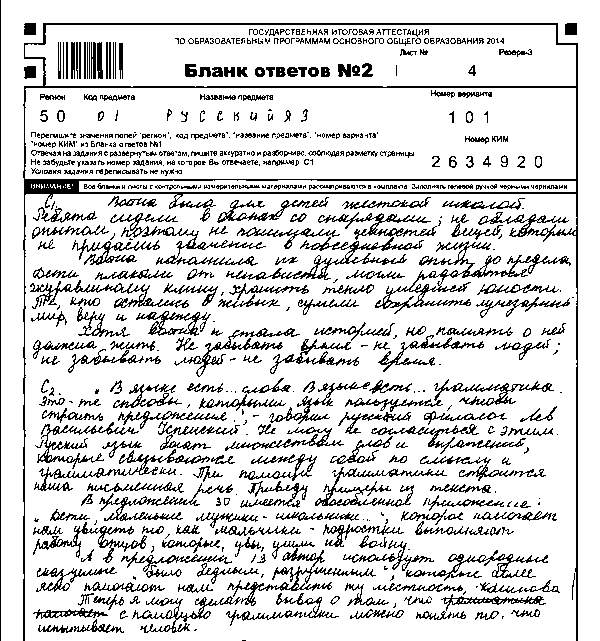 ГОСУДАРСТВЕННАЯ ИТОГОВАЯ АТТЕСТАЦИЯ
ПО ОБРАЗОВАТЕЛЬНЫМ ПРОГРАММАМ ОСНОВНОГО ОБЩЕГО ОБРАЗОВАНИЯ 2014
Лист № Резерв-3
Бланк ответов №2 | 4
Регион Код предмета Название предмета Номер варианта
50 01 РУССКИЙ ЯЗ 101
Перепишите значения полей "регион", "код предмета", "название предмета", "номер варианта"
"номер КИМ" из Бланка ответов №1 Номер КИМ
Отвечая на задания с развернутым ответом, пишите аккуратно и разборчиво, соблюдая разметку страницы
Не забудьте указать номер задания, на которое Вы отвечаете, например, С1 2634920
Условия задания переписывать не нужно
ВНИМАНИЕ! Все бланки и листы с контрольными измерительными материалами рассматриваются в комплекте. Заполнять гелевой ручкой черными чернилами
С1. Война была для детей жестокой школой.
Ребята сидели в окопах со снарядами; не обладали
опытом, поэтому не понимали ценностей вещей, которым
не придаёшь значение в повседневной жизни.
Война наполнила их душевный опыт до предела,
дети плакали от ненависти, могли радоваться
журавлиному клину, хранить тепло ушедшей юности.
Те, кто остались в живых, сумели сохранить лучезарный
мир, веру и надежду.
Хотя война и стала историей, но память о ней
должна жить. Не забывать время - не забывать людей;
не забывать людей - не забывать время.
С2. "В языке есть... слова. В языке есть... грамматика.
Это - те способы, которыми язык пользуется, чтобы
строить предложение", - говорил русский филолог Лев
Васильевич Успенский. Не могу не согласиться с этим.
Русский язык богат множеством слов и выражений,
которые связываются между собой по смыслу и
грамматически. При помощи грамматики строится
наша письменная речь. Приведу примеры из текста.
В предложении 30 имеется обособленное приложение:
"дети, маленькие мужики - школьники...", которое помогает
нам увидеть то, как мальчики - подростки выполняют
работу отцов, которые, увы, ушли на войну.
А в предложении 13 автор использует однородные
сказуемые "было бедным, разрушенным", которые более
ясно помогают нам представить ту местность,
Теперь я могу сделать вывод о том, что грамматика
помогает с помощью грамматики можно понять то, что
испытывает человек.